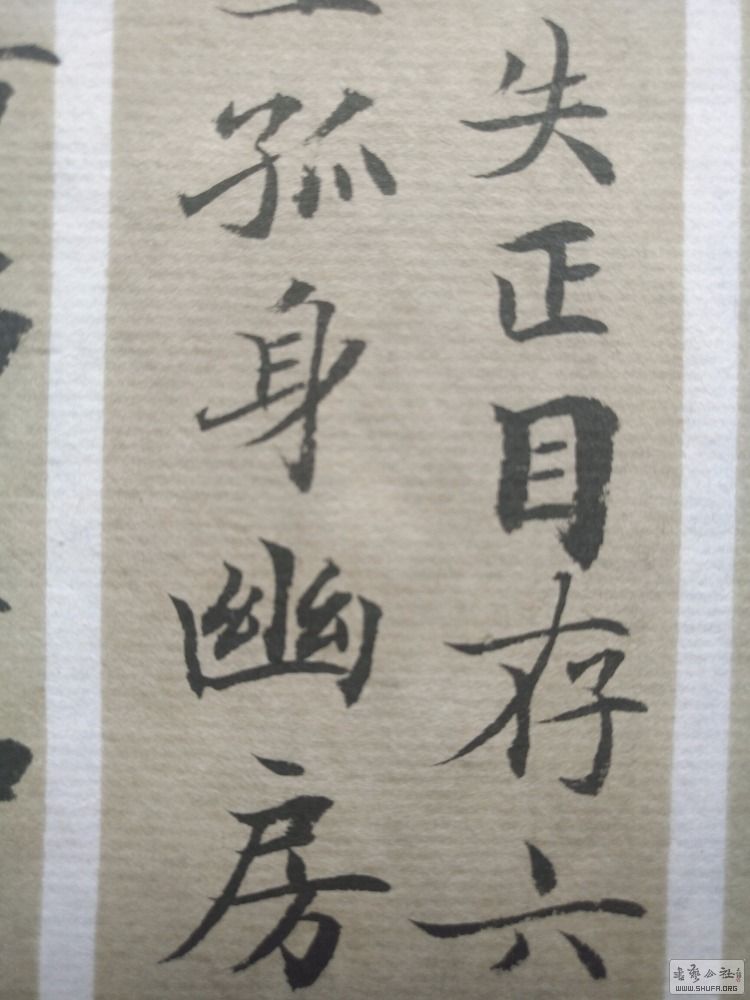 失正目存六
孤身幽房
书艺公社
WWW.SHUFA.ORG